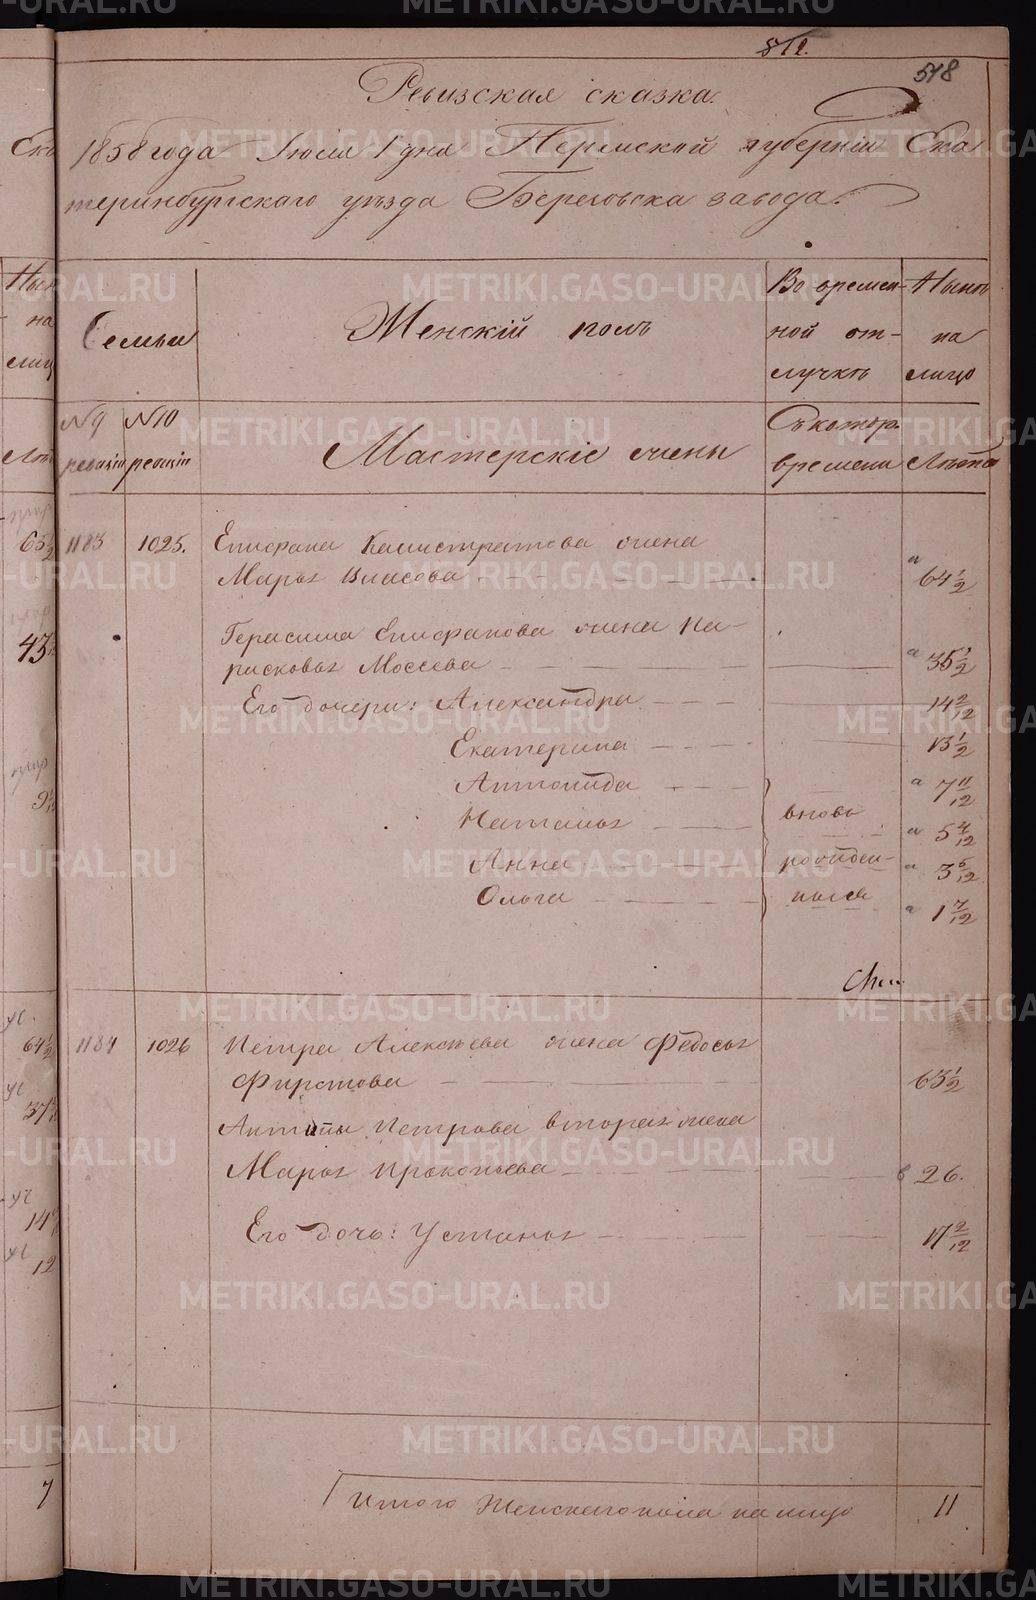 512.
518
Ревизская сказка.
1858 года Июля 1 дня Пермской губерніи Ека
теринбургскаго уѣзда Березовска завода.
Семьи
Женскій полъ
Во времен-
ной от-
лучкѣ
Нынѣ
на
лицо
N 9 ревизіи
N 10 ревизіи
Мастерскіе жены
Съ котор. времени
Лѣта
1183 1025. Епифана Калистратова жена
Марья Власова 64 1/2
Герасима Епифанова жена Па-
расковья Моссева 35 1/2
Его дочери: Александра 14 2/12
Екатерина 13 1/2
Антонида 7 11/12
Наталья вновь 5 4/12
Анна рожден- 3 6/12
Ольга ныя 1 7/12
1184 1026 Петра Алексѣева жена Федосья
Фирстова 63 1/2
Антипы Петрова вторая жена
Марья Прокопьева 26.
Его дочь: Устинья 17 2/12
Итого Женскаго пола на лицо 11
65 1/2
43
9
64 1/2
37
14
12
7
METRIKI.GASO-URAL.RU